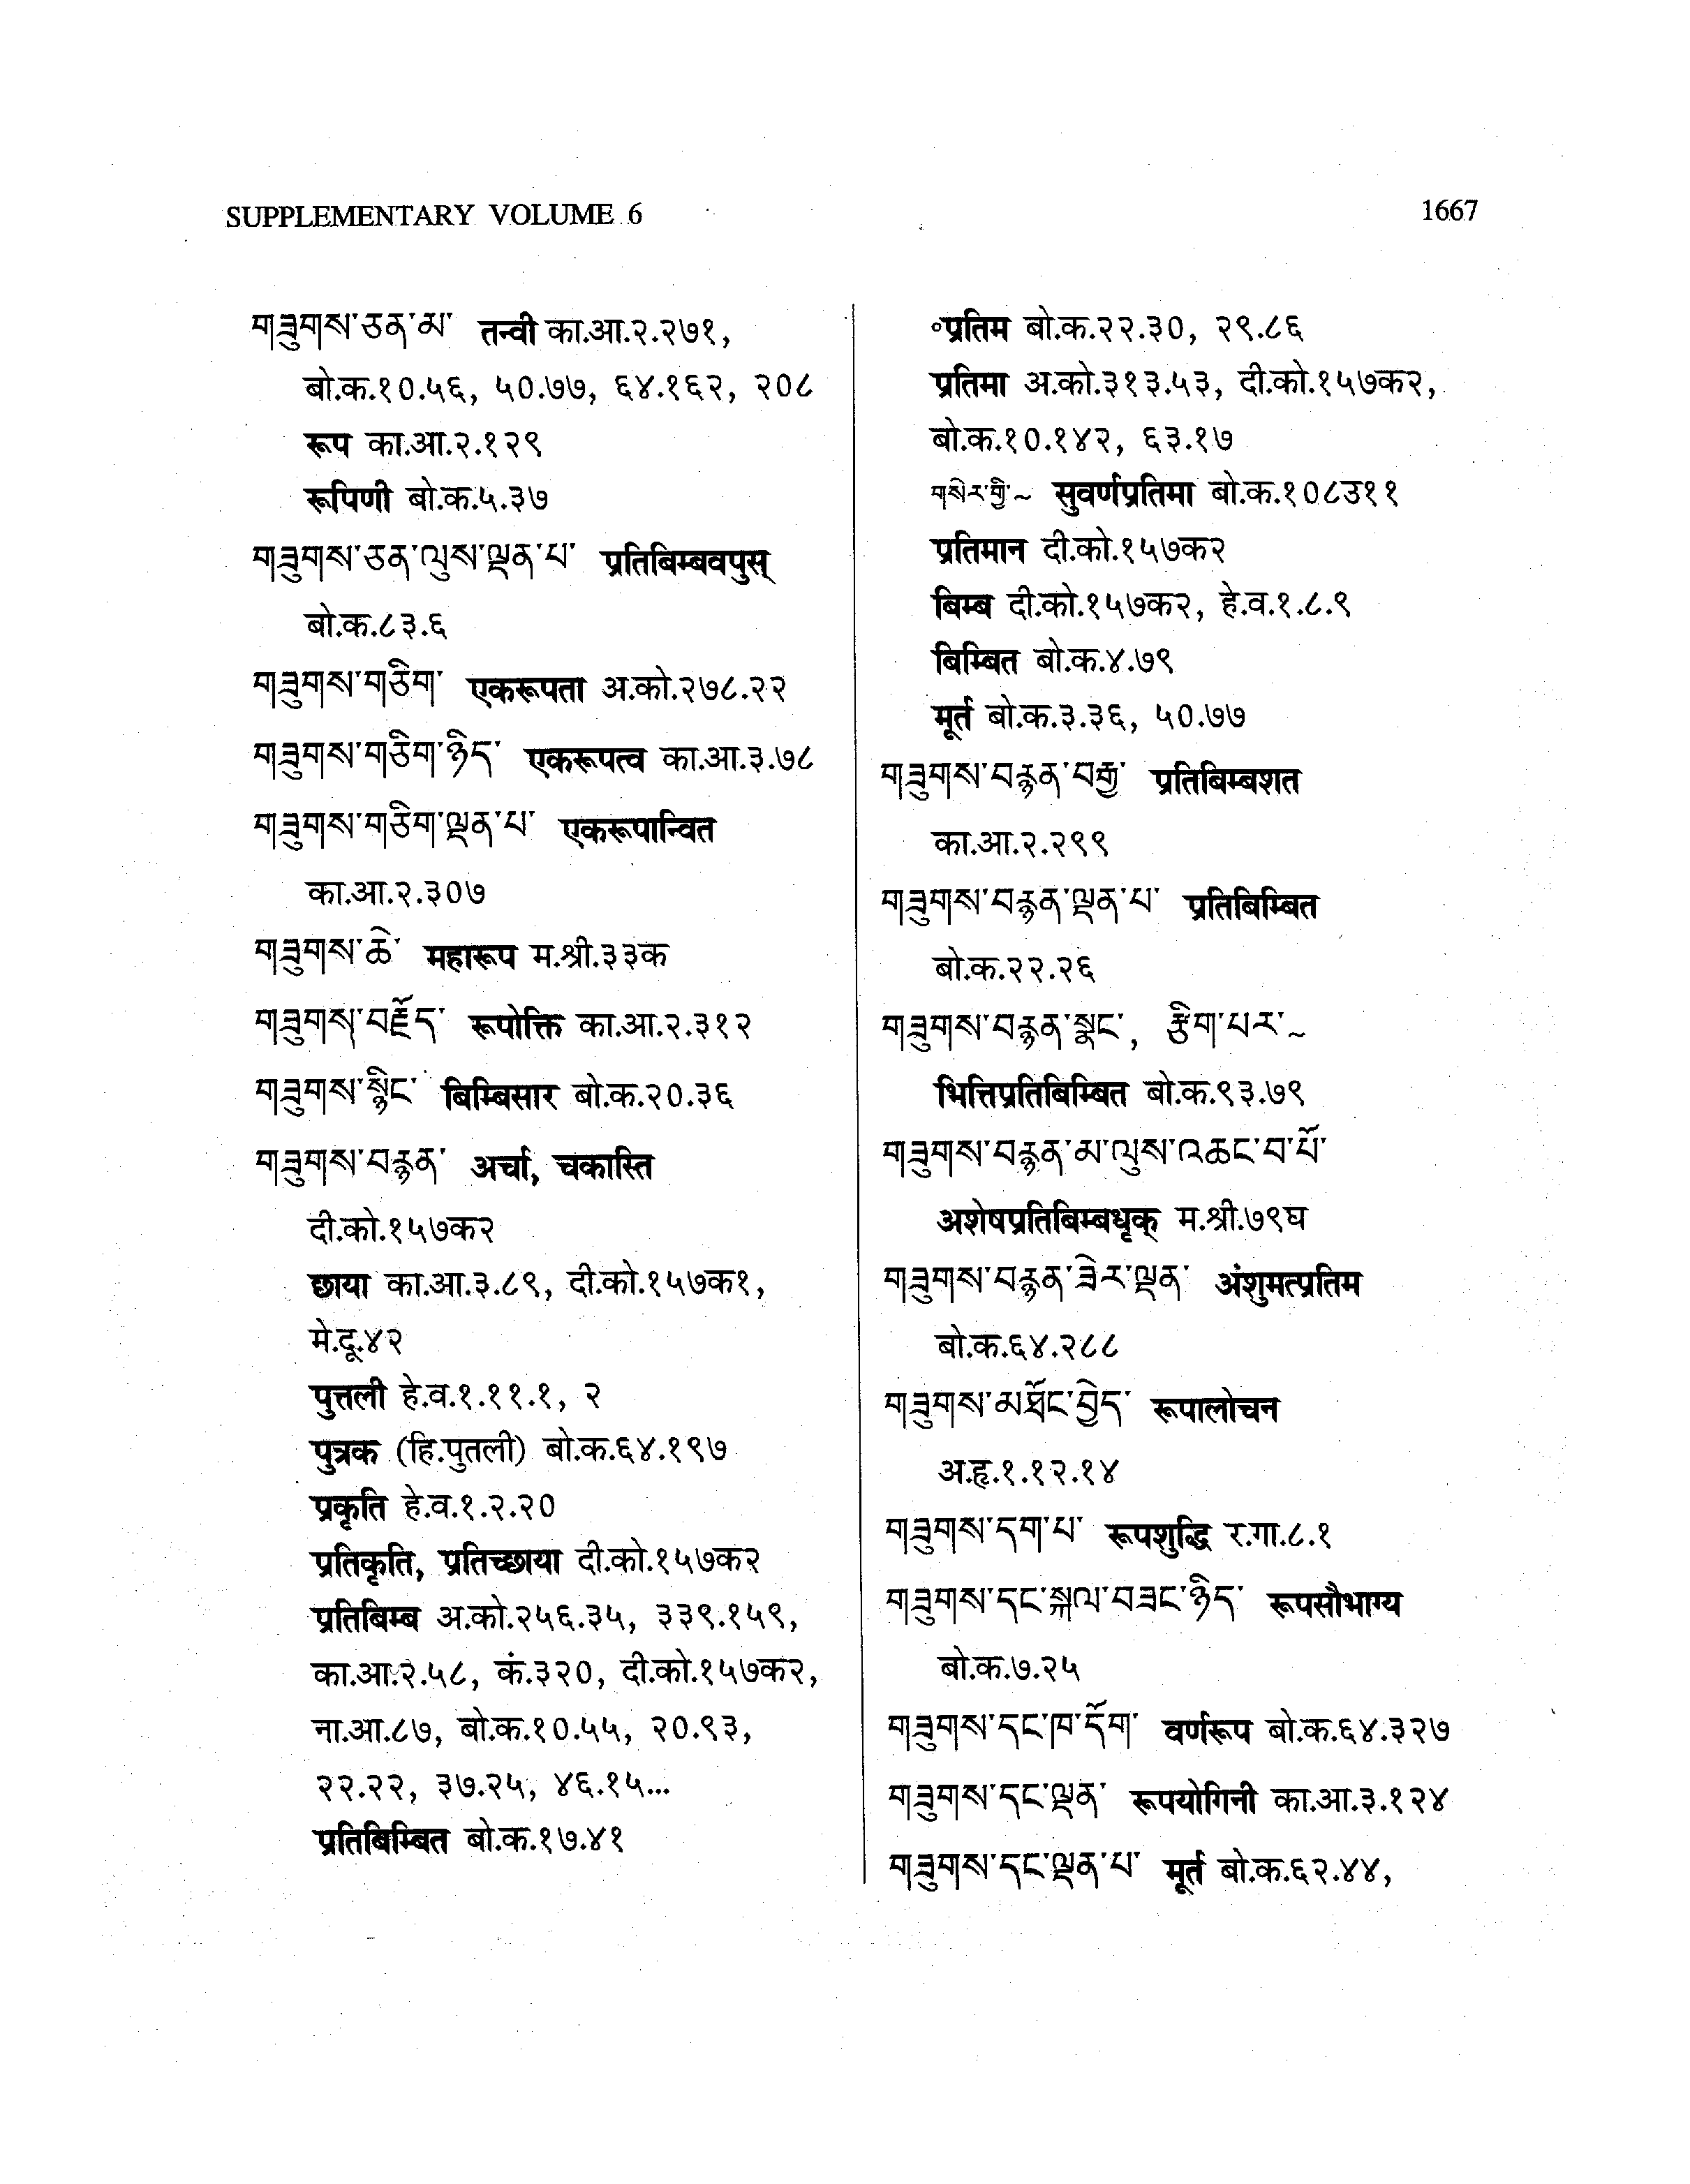 SUPPLEMENTARY VOLUME 6
1667
གཟུགས་ཅན་མ་ तन्वी का.आ.२.२७१,
बो.क.१०.५६, ५०.७७, ६४.१६२, २०८
रूप का.आ.२.१२९
रूपिणी बो.क.५.३७
གཟུགས་ཅན་ལུས་ལྡན་པ་ प्रतिबिम्बवपुस्
बो.क.८३.६
གཟུགས་གཅིག་ एकरूपता अ.को.२७८.२२
གཟུགས་གཅིག་ཉིད་ एकरूपत्व का.आ.३.७८
གཟུགས་གཅིག་ལྡན་པ་ एकरूपान्वित
का.आ.२.३०७
གཟུགས་ཆེ་ महारूप म.श्री.३३क
གཟུགས་བརྗོད་ रूपोक्ति का.आ.२.३१२
གཟུགས་སྙིང་ बिम्बिसार बो.क.२०.३६
གཟུགས་བརྙན་ अर्चा, चकास्ति
दी.को.१५७क२
छाया का.आ.३.८९, दी.को.१५७क१,
मे.दू.४२
पुत्तली हे.व.१.११.१, २
पुत्रक (हि.पुतली) बो.क.६४.१९७
प्रकृति हे.व.१.२.२०
प्रतिकृति, प्रतिच्छाया दी.को.१५७क२
प्रतिबिम्ब अ.को.२५६.३५, ३३९.१५९,
का.आ.२.५८, कं.३२०, दी.को.१५७क२,
ना.आ.८७, बो.क.१०.५५, २०.९३,
२२.२२, ३७.२५, ४६.१५...
प्रतिबिम्बित बो.क.१७.४१
॰प्रतिम बो.क.२२.३०, २९.८६
प्रतिमा अ.को.३१३.५३, दी.को.१५७क२,
बो.क.१०.१४२, ६३.१७
གསེར་གྱི་~ सुवर्णप्रतिमा बो.क.१०८उ११
प्रतिमान दी.को.१५७क२
बिम्ब दी.को.१५७क२, हे.व.१.८.९
बिम्बित बो.क.४.७९
मूर्त बो.क.३.३६, ५०.७७
གཟུགས་བརྙན་བརྒྱ་ प्रतिबिम्बशत
का.आ.२.२९९
གཟུགས་བརྙན་ལྡན་པ་ प्रतिबिम्बित
बो.क.२२.२६
གཟུགས་བརྙན་སྣང་, རྩིག་པར་~
भित्तिप्रतिबिम्बित बो.क.९३.७९
གཟུགས་བརྙན་མ་ལུས་འཆང་བ་པོ་
अशेषप्रतिबिम्बधृक् म.श्री.७९घ
གཟུགས་བརྙན་ཟེར་ལྡན་ अंशुमत्प्रतिम
बो.क.६४.२८८
གཟུགས་མཐོང་བྱེད་ रूपालोचन
अ.हृ.१.१२.१४
གཟུགས་དག་པ་ रूपशुद्धि र.गा.८.१
གཟུགས་དང་སྐལ་བཟང་ཉིད་ रूपसौभाग्य
बो.क.७.२५
གཟུགས་དང་ཁ་དོག་ वर्णरूप बो.क.६४.३२७
གཟུགས་དང་ལྡན་ रूपयोगिनी का.आ.३.१२४
གཟུགས་དང་ལྡན་པ་ मूर्त बो.क.६२.४४,